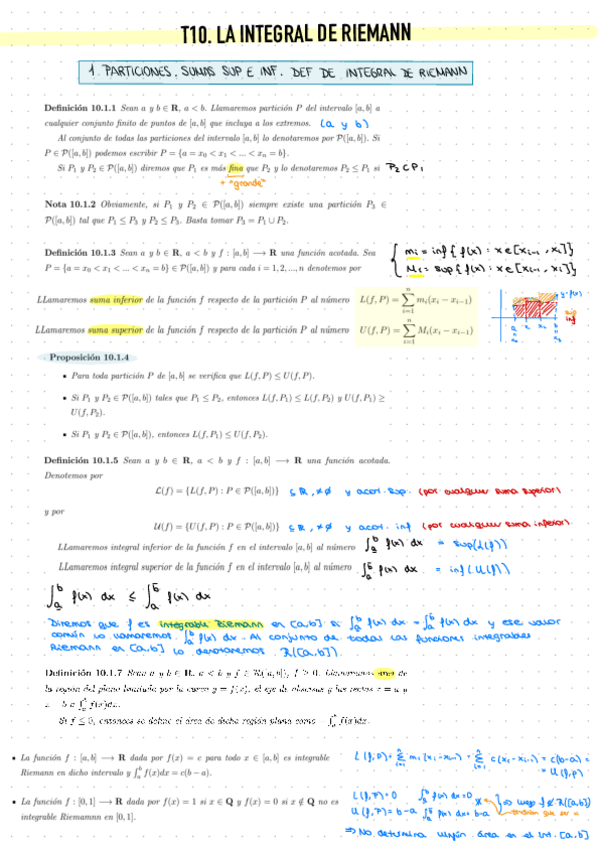 T10. LA INTEGRAL DE RIEMANN
1. PARTICIONES, SUMAS SUP E INF. DEF DE INTEGRAL DE RIEMANN
Definición 10.1.1 Sean a y b ∈ R, a < b. Llamaremos partición P del intervalo [a, b] a
cualquier conjunto finito de puntos de [a, b] que incluya a los extremos. (a y b)
Al conjunto de todas las particiones del intervalo [a, b] lo denotaremos por P([a, b]). Si
P ∈ P([a, b]) podemos escribir P = {a = x₀ < x₁ < ... < xₙ = b}.
Si P₁ y P₂ ∈ P([a, b]) diremos que P₁ es más fina que P₂ y lo denotaremos P₂ ≤ P₁ si P₂ ⊂ P₁
+ "grande"
Nota 10.1.2 Obviamente, si P₁ y P₂ ∈ P([a, b]) siempre existe una partición P₃ ∈
P([a, b]) tal que P₁ ≤ P₃ y P₂ ≤ P₃. Basta tomar P₃ = P₁ ∪ P₂.
Definición 10.1.3 Sean a y b ∈ R, a < b y f : [a, b] ⟶ R una función acotada. Sea
P = {a = x₀ < x₁ < ... < xₙ = b} ∈ P([a, b]) y para cada i = 1, 2, ..., n denotemos por
mᵢ = inf{f(x) : x ∈ [xᵢ₋₁, xᵢ]}
Mᵢ = sup{f(x) : x ∈ [xᵢ₋₁, xᵢ]}
LLamaremos suma inferior de la función f respecto de la partición P al número L(f, P) = ∑ⁿᵢ₌₁ mᵢ(xᵢ − xᵢ₋₁)
y=f(x)
sup
inf
LLamaremos suma superior de la función f respecto de la partición P al número U(f, P) = ∑ⁿᵢ₌₁ Mᵢ(xᵢ − xᵢ₋₁)
Proposición 10.1.4
• Para toda partición P de [a, b] se verifica que L(f, P) ≤ U(f, P).
• Si P₁ y P₂ ∈ P([a, b]) tales que P₁ ≤ P₂, entonces L(f, P₁) ≤ L(f, P₂) y U(f, P₁) ≥
U(f, P₂).
• Si P₁ y P₂ ∈ P([a, b]), entonces L(f, P₁) ≤ U(f, P₂).
Definición 10.1.5 Sean a y b ∈ R, a < b y f : [a, b] ⟶ R una función acotada.
Denotemos por
L(f) = {L(f, P) : P ∈ P([a, b])} ⊆ R, ≠ ∅ y acot. sup. (por cualquier suma superior)
y por
U(f) = {U(f, P) : P ∈ P([a, b])} ⊆ R, ≠ ∅ y acot. inf (por cualquier suma inferior).
LLamaremos integral inferior de la función f en el intervalo [a, b] al número ∫ₐᵇ f(x) dx = sup(L(f))
LLamaremos integral superior de la función f en el intervalo [a, b] al número ∫ₐᵇ f(x) dx = inf(U(f))
∫ₐᵇ f(x) dx ≤ ∫ₐᵇ f(x) dx
Diremos que f es integrable Riemann en [a,b] si ∫ₐᵇ f(x) dx = ∫ₐᵇ f(x) dx y ese valor
común lo llamaremos ∫ₐᵇ f(x) dx. Al conjunto de todas las funciones integrables
Riemann en [a,b] lo denotaremos R([a,b]).
Definición 10.1.7 Sean a y b ∈ R, a < b y f ∈ R([a, b]), f ≥ 0. Llamaremos área de
la región del plano limitada por la curva y = f(x), el eje de abscisas y las rectas x = a y
x = b a ∫ₐᵇ f(x)dx.
Si f ≤ 0, entonces se define el área de dicha región plana como − ∫ₐᵇ f(x)dx.
• La función f : [a, b] ⟶ R dada por f(x) = c para todo x ∈ [a, b] es integrable
Riemann en dicho intervalo y ∫ₐᵇ f(x)dx = c(b − a).
L(f,P) = ∑ⁿᵢ₌₁ mᵢ(xᵢ-xᵢ₋₁) = ∑ⁿᵢ₌₁ c(xᵢ-xᵢ₋₁) = c(b-a) =
= U(f,P)
• La función f : [0, 1] ⟶ R dada por f(x) = 1 si x ∈ Q y f(x) = 0 si x ∉ Q no es
integrable Riemannn en [0, 1].
L(f,P) = 0 ∫ₐᵇ f(x) dx = 0 ⇒ luego f ∉ R([a,b])
U(f,P) = b-a ∫ₐᵇ f(x) dx = b-a
⇒ No determina ningún área en el int. [a,b]